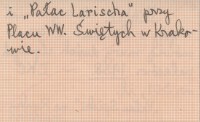 i „Pałac Larischa” przy
Placu WW. Świętych w Krako-
wie.